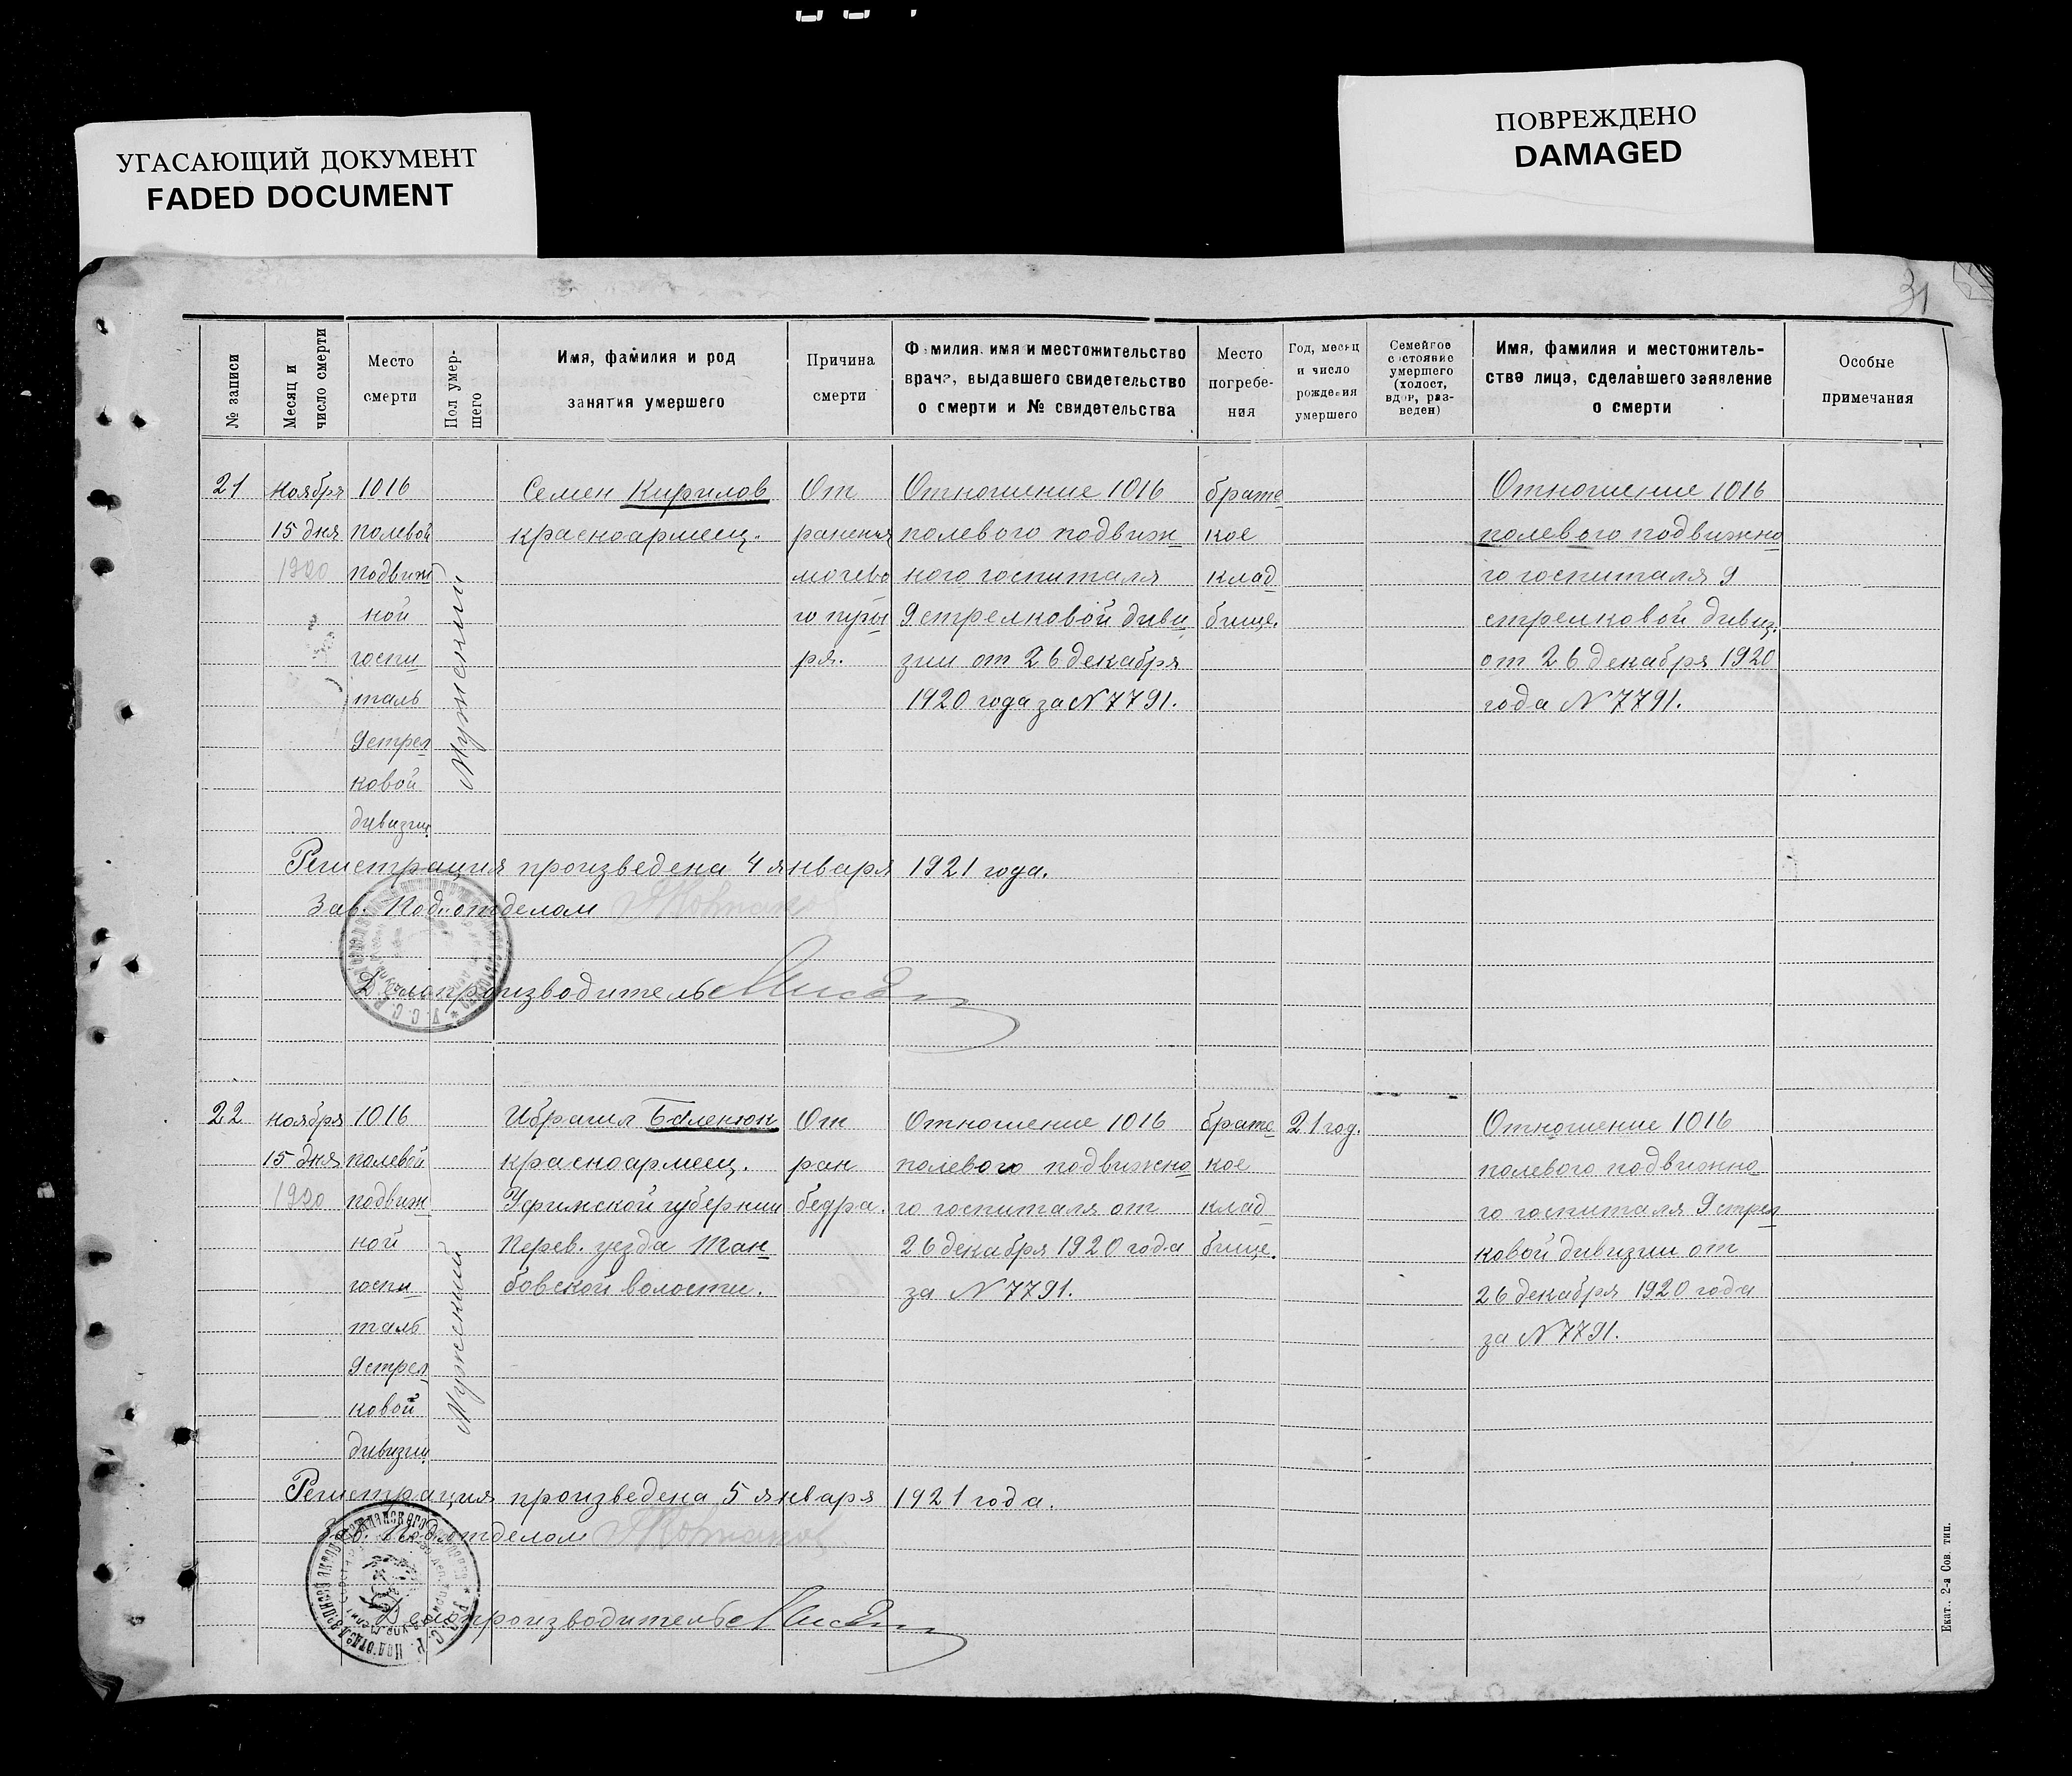 УГАСАЮЩИЙ ДОКУМЕНТ
FADED DOCUMENT
ПОВРЕЖДЕНО
DAMAGED
31
№ записи
Месяц и
число смерти
Место
смерти
Пол умер-
шего
Имя, фамилия и род
занятия умершего
Причина
смерти
Фамилия, имя и местожительство
врача, выдавшего свидетельство
о смерти и № свидетельства
Место
погребе-
ния
Год, месяц
и число
рождения
умершего
Семейное
состояние
умершего
(холост,
вдов, раз-
веден)
Имя, фамилия и местожитель-
ство лица, сделавшего заявление
о смерти
Особые
примечания
21
Ноября
15 дня
1920
1016
полевой
подвиж
ной
госпи
таль
9 стрел
ковой
дивизии
Мужский
Семен Кирилов
красноармеец.
От
ранения
мочево
го пузы
ря.
Отношение 1016
полевого подвиж
ного госпиталя
9 стрелковой диви
зии от 26 декабря
1920 года за N 7791.
братс
кое
клад
бище.
Отношение 1016
полевого подвижно
го госпиталя 9
стрелковой дивиз.
от 26 декабря 1920
года N 7791.
Регистрация произведена 4 января 1921 года.
Зав. Подотделом
Делопроизводитель
22
Ноября
15 дня
1920
1016
полевой
подвиж
ной
госпи
таль
9 стрел
ковой
дивизии
Мужеский
Ибрагим Баленюк
красноармеец.
Уфимской губернии
перев. уезда Там
бовской волости.
От
ран
бедра.
Отношение 1016
полевого подвижно
го госпиталя от
26 декабря 1920 года
за N 7791.
братс
кое
клад
бище.
21 год.
Отношение 1016
полевого подвижно
го госпиталя 9 стрел
ковой дивизии от
26 декабря 1920 года
за N 7791.
Регистрация произведена 5 января 1921 года.
Зав. Подотделом
Делопроизводитель
Екат., 2-я Сов. тип.